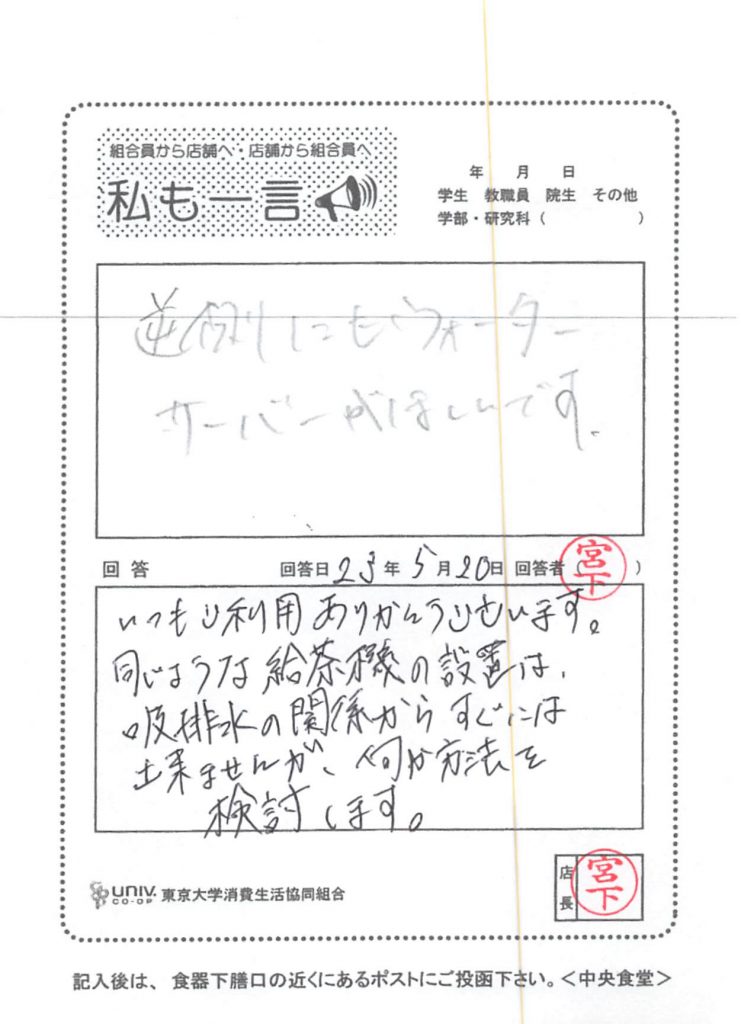 組合員から店舗へ・店舗から組合員へ
私も一言
年 月 日
学生 教職員 院生 その他
学部・研究科( )
逆側にもウォーター
サーバーがほしいです。
回答 回答日 23年 5月 20日 回答者( 宮下 )
いつもご利用ありがとうございます。
同じような給茶機の設置は、
吸排水の関係からすぐには
出来ませんが、何か方法を
検討します。
UNIV. CO-OP 東京大学消費生活協同組合
店長 宮下
記入後は、食器下膳口の近くにあるポストにご投函下さい。<中央食堂>